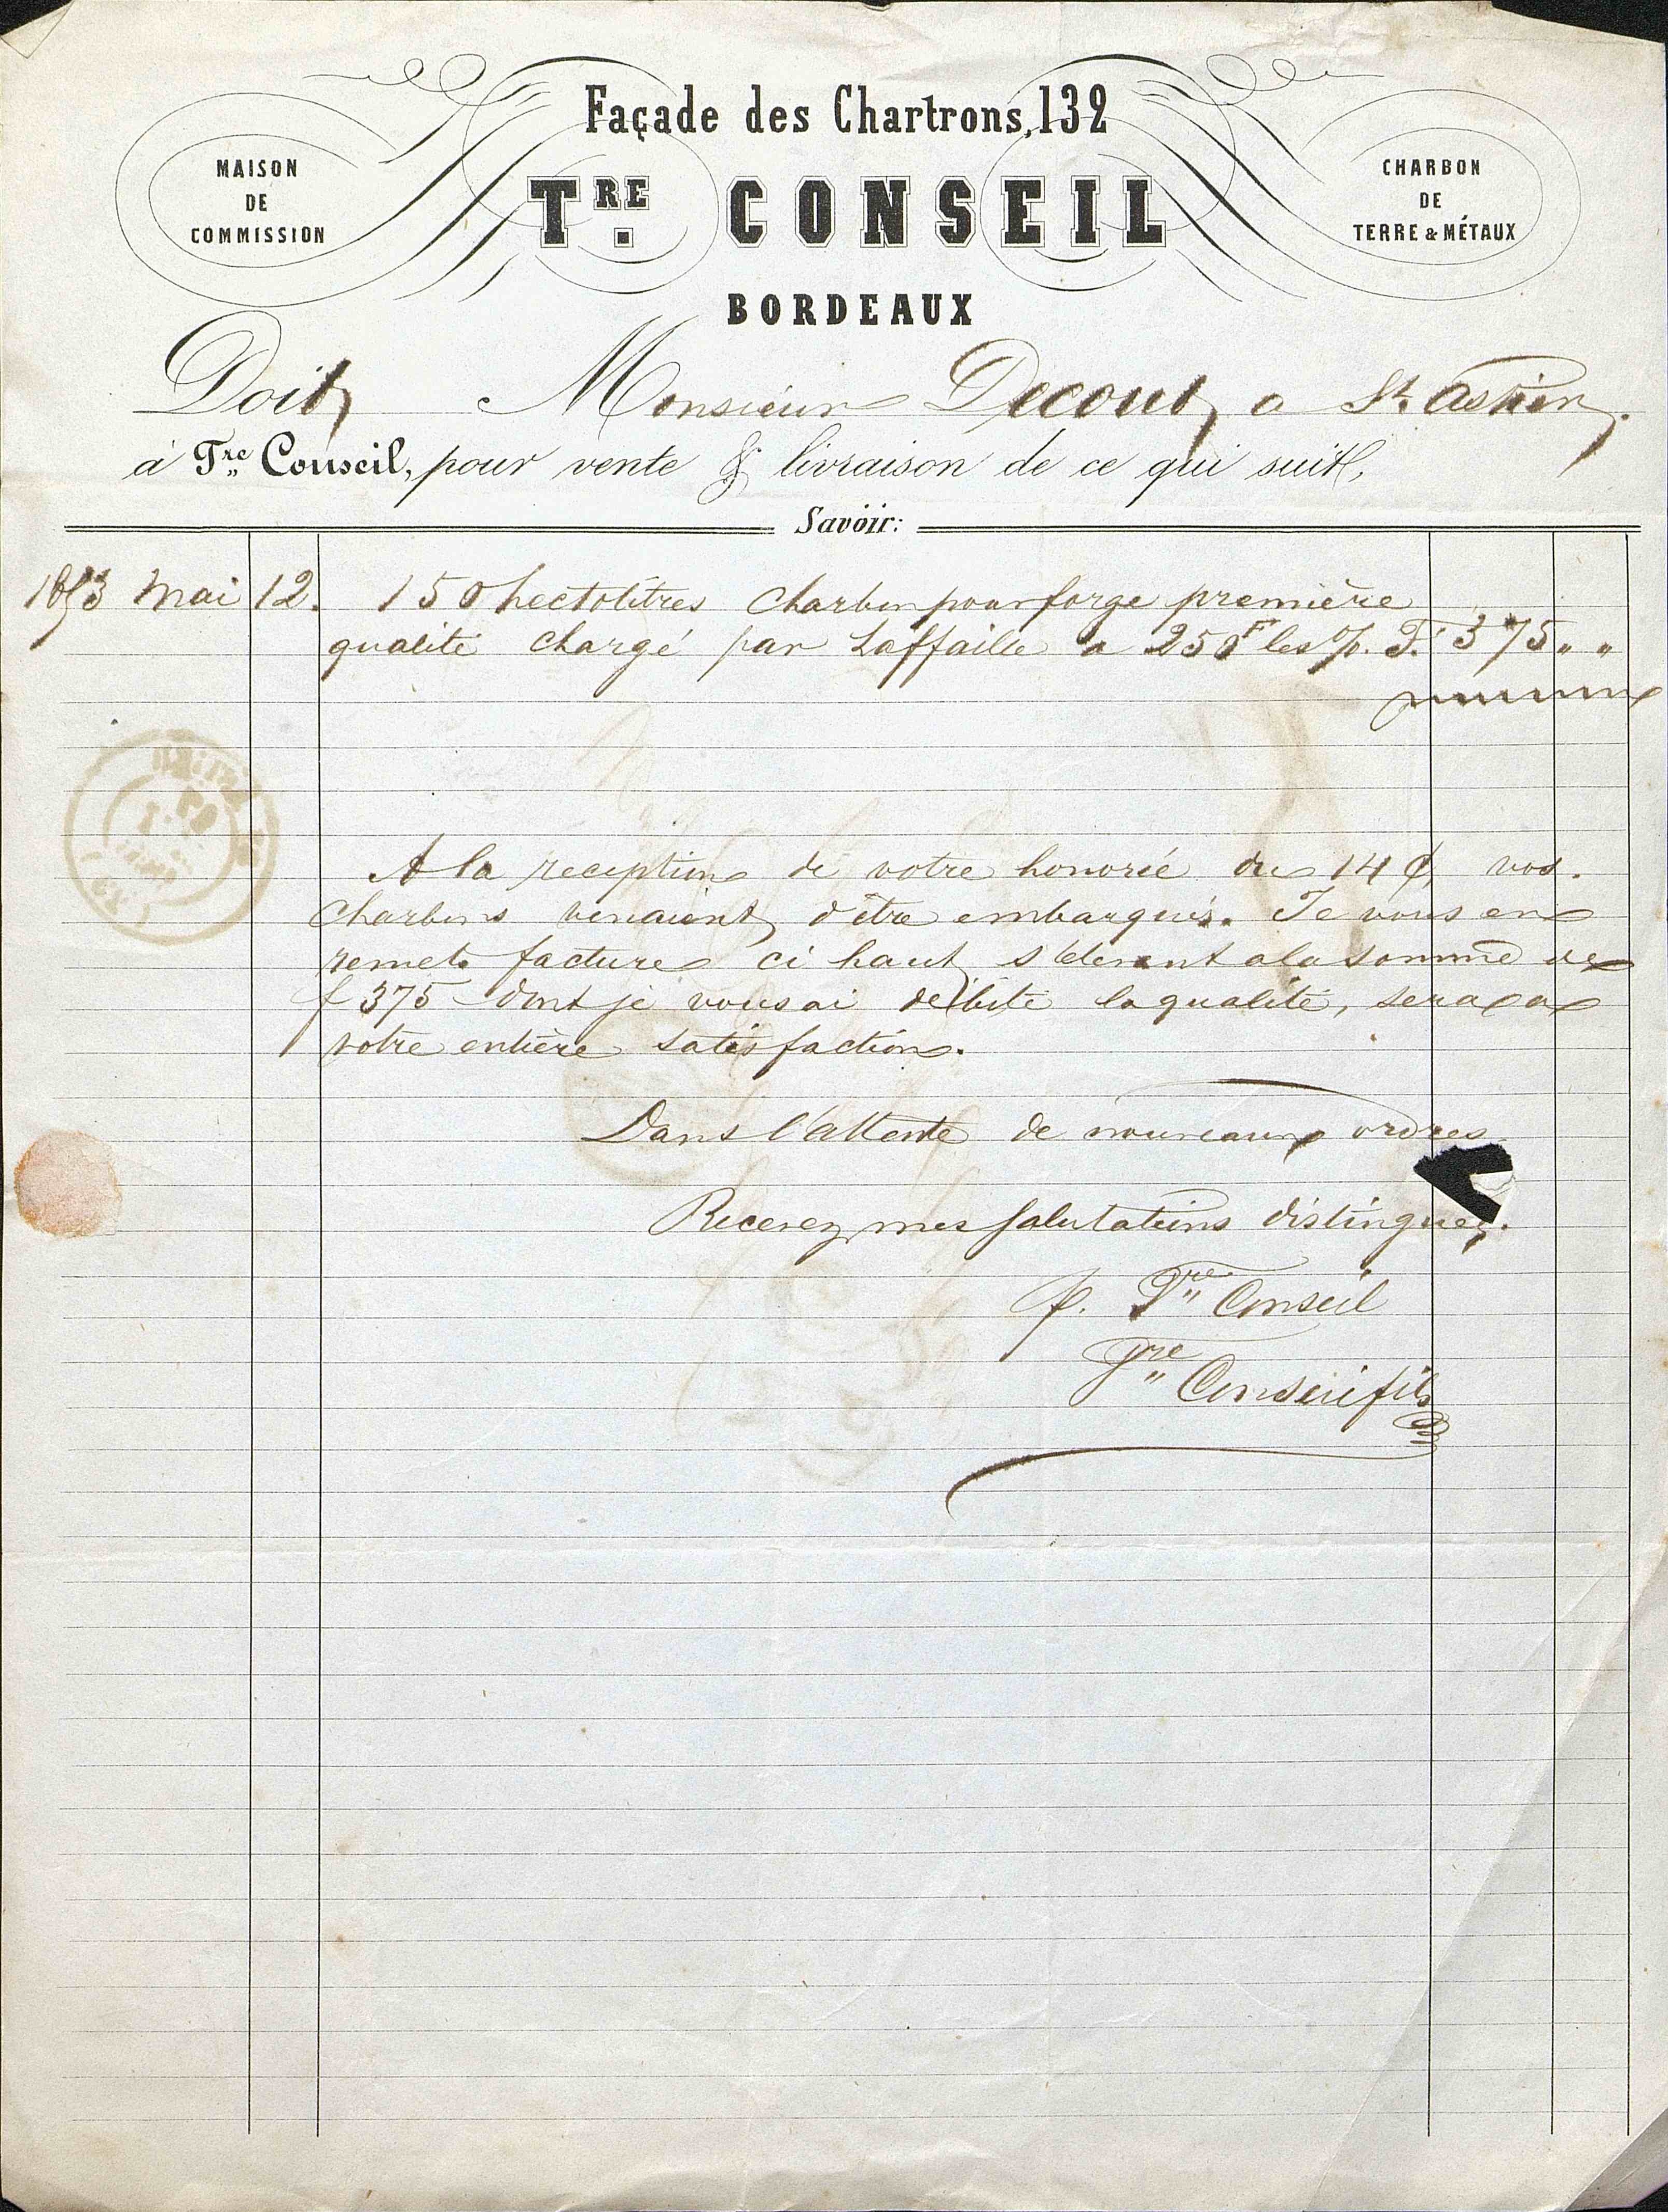 Façade des Chartrons, 132
MAISON
DE
COMMISSION
TRE. CONSEIL
CHARBON
DE
TERRE & MÉTAUX
BORDEAUX
Doit Monsieur Decout a St. Astier.
à Tre Conseil, pour vente & livraison de ce qui suit,
Savoir:
1853 Mai 12. 150 hectolitres Charbon pour forge première
qualité chargé par Laffaille a 250F les %. F. 375 " "
A la reception de votre honorée du 14 Ct, vos
Charbons venaient d'être embarqués. Je vous en
remets facture ci haut s'élevant a la somme de
f 375 dont je vous ai débité la qualité, sera a
votre entière satisfaction.
Dans l'attente de nouveaux ordres
Recevez mes salutations distinguées.
p. Tre Conseil
Tre Conseil fils